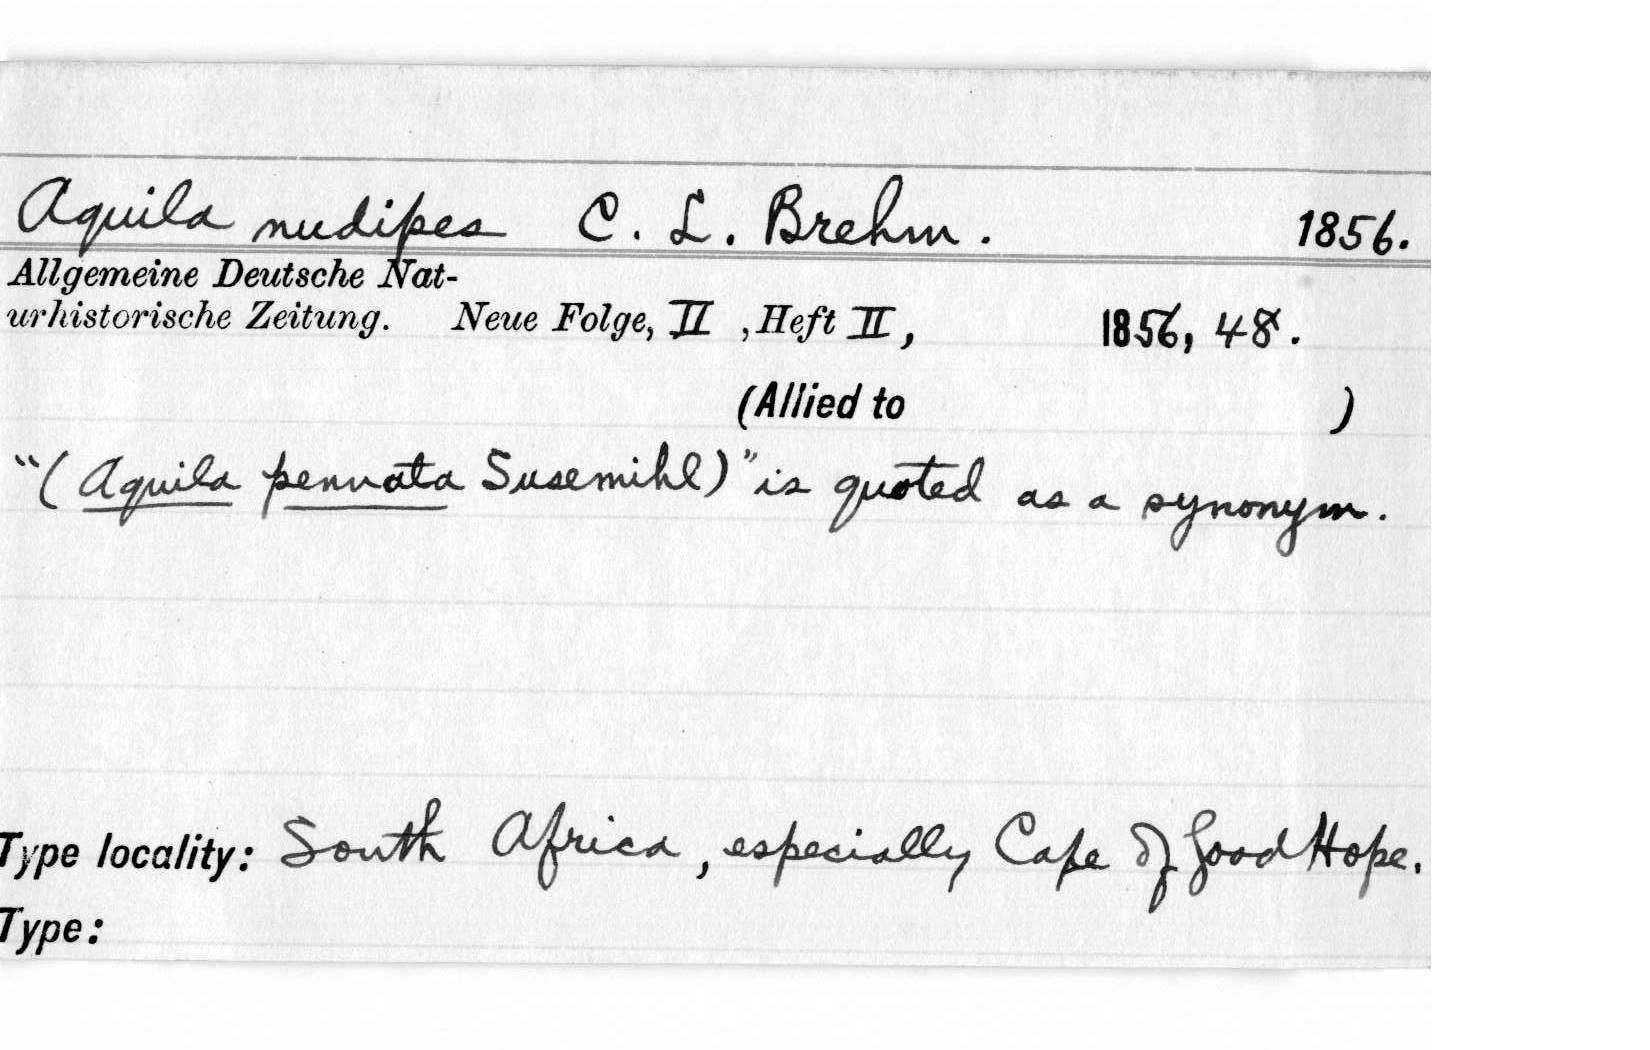 Aquila nudipes C. L. Brehm. 1856.
Allgemeine Deutsche Nat-
urhistorische Zeitung. Neue Folge, II , Heft II, 1856, 48.
(Allied to )
"(Aquila pennata Susemihl)" is quoted as a synonym.
Type locality: South Africa, especially Cape of Good Hope.
Type: